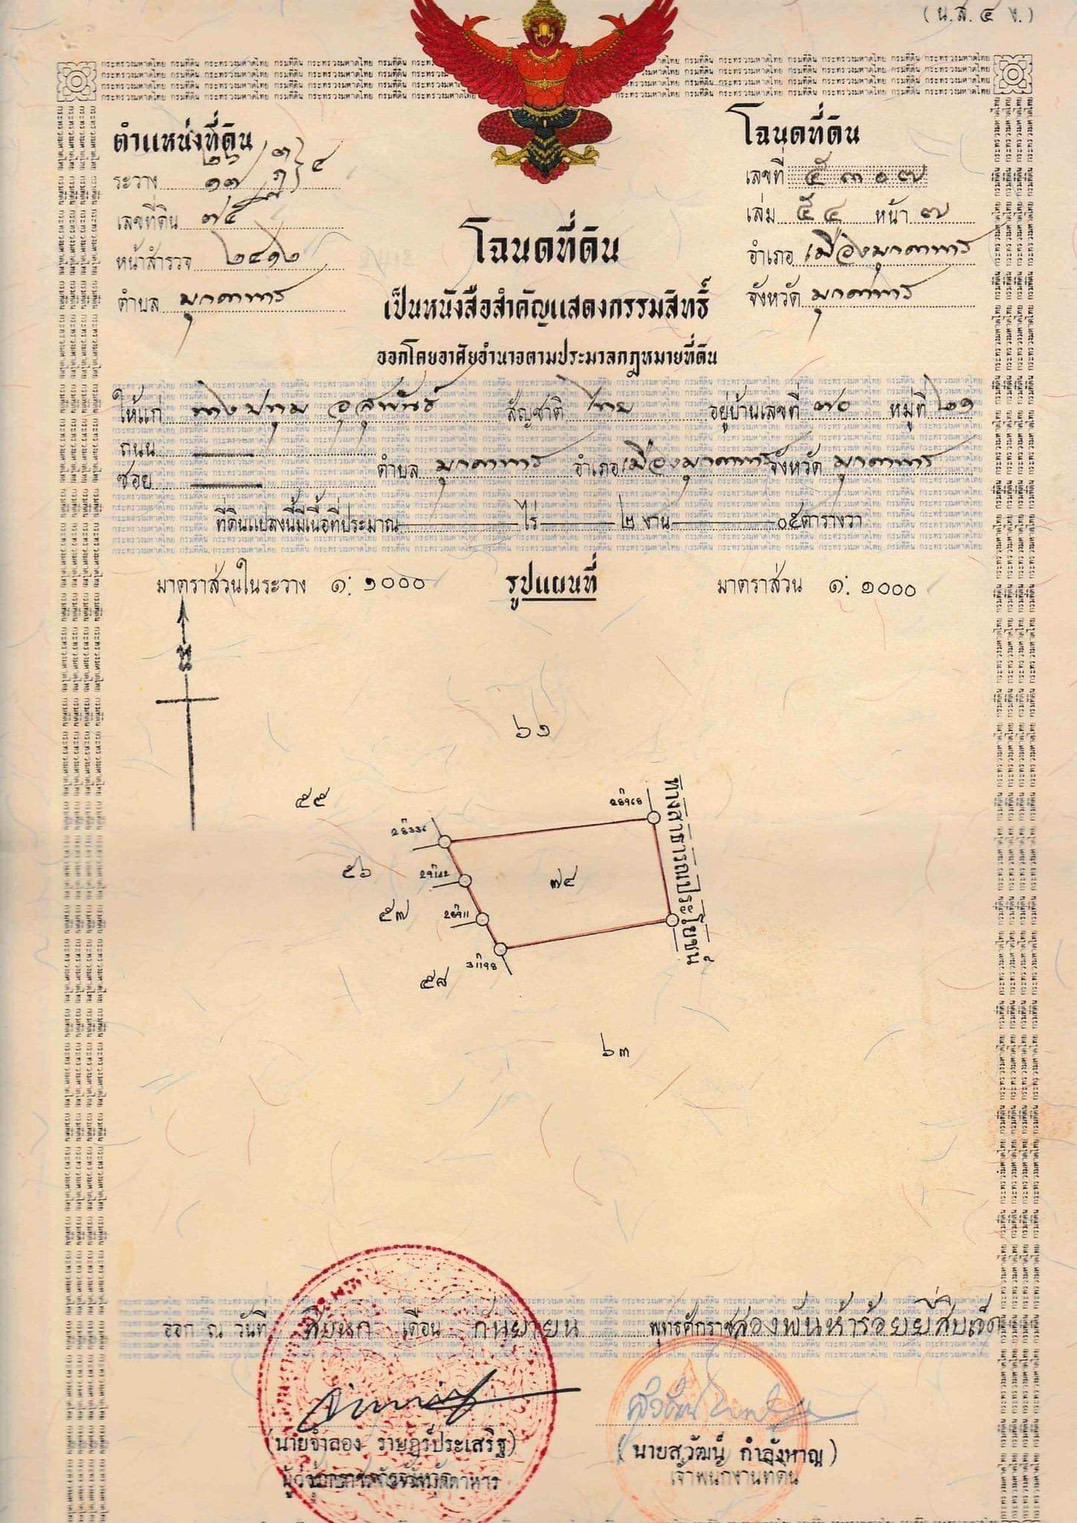 ( น.ส. ๔ ง. )
ตำแหน่งที่ดิน
ระวาง
เลขที่ดิน ๗๔
หน้าสำรวจ ๒๔๑๒
ตำบล มุกดาหาร
โฉนดที่ดิน
เลขที่ ๕๓๐๗
เล่ม ๕๔ หน้า ๗
อำเภอ เมืองมุกดาหาร
จังหวัด มุกดาหาร
โฉนดที่ดิน
เป็นหนังสือสำคัญแสดงกรรมสิทธิ์
ออกโดยอาศัยอำนาจตามประมวลกฎหมายที่ดิน
ให้แก่ สัญชาติ ไทย อยู่บ้านเลขที่ ๓๐ หมู่ที่
ถนน
ซอย ตำบล มุกดาหาร อำเภอ เมืองมุกดาหาร จังหวัด มุกดาหาร
ที่ดินแปลงนี้มีเนื้อที่ประมาณ ไร่ ๒ งาน ๐๕ ตารางวา
มาตราส่วนในระวาง ๑: ๑๐๐๐ รูปแผนที่ มาตราส่วน ๑: ๑๐๐๐
น
๖๑
๕๕
๕๖
๗๔
๕๗
๕๘
๖๓
ทางสาธารณประโยชน์
ออก ณ วันที่ สิบหก เดือน กันยายน พุทธศักราช สองพันห้าร้อยยี่สิบเอ็ด
(นายจำลอง ราษฎร์ประเสริฐ)
ผู้ว่าราชการจังหวัดมุกดาหาร
( นายสุวัฒน์ กำลังหาญ )
เจ้าพนักงานที่ดิน